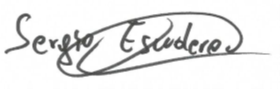 Sergio Escudero